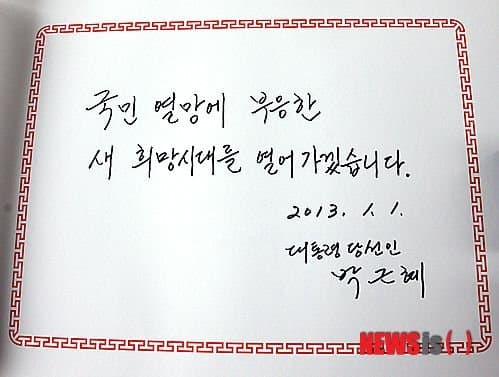 국민 열망에 부응한
새 희망시대를 열어가겠습니다.
2013. 1. 1.
대통령 당선인
박근혜
NEWSis( )